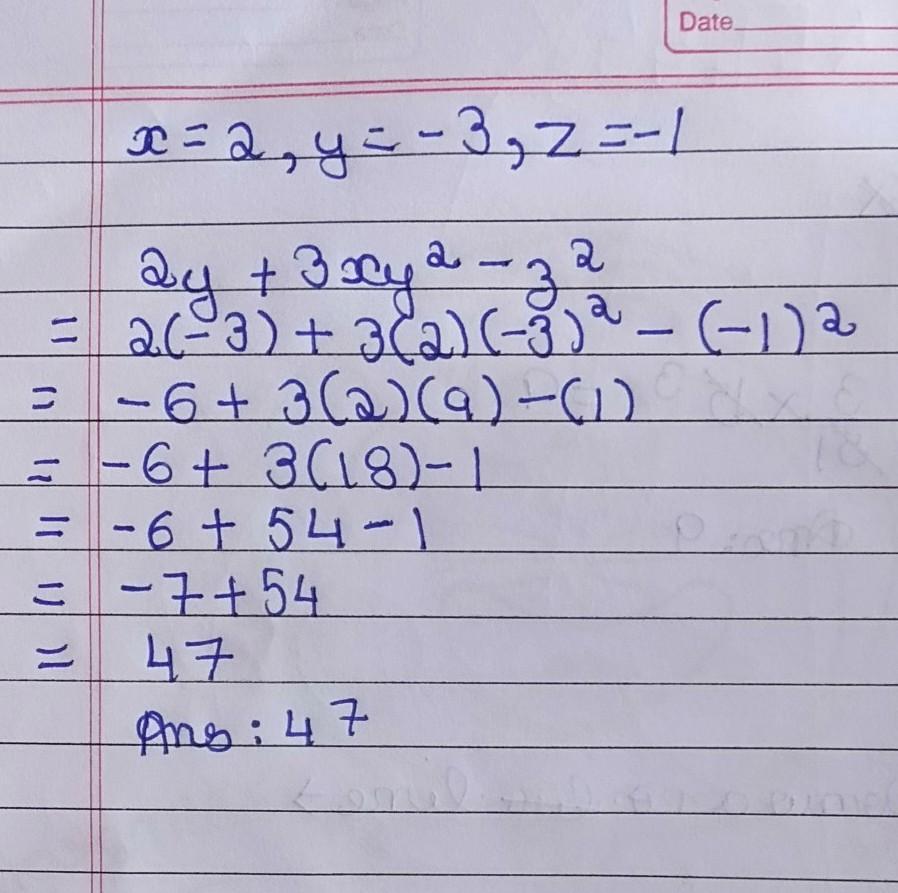 Date
x = 2, y = -3, z = -1
2y + 3xy² - z²
= 2(-3) + 3(2)(-3)² - (-1)²
= -6 + 3(2)(9) - (1)
= -6 + 3(18) - 1
= -6 + 54 - 1
= -7 + 54
= 47
Ans : 47